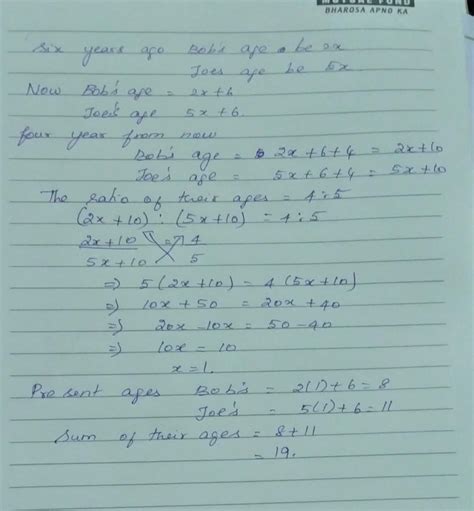 MUTUAL FUND
BHAROSA APNO KA
Six years ago Bob's age be 2x
Joes age be 5x
Now Bob's age = 2x+6
Joe's age 5x+6.
four year from now
Bob's age = 2x+6+4 = 2x+10
Joe's age = 5x+6+4 = 5x+10
The ratio of their ages = 4:5
(2x+10) : (5x+10) = 4:5
2x+10 = 4
5x+10 5
⇒ 5(2x+10) = 4(5x+10)
⇒ 10x+50 = 20x+40
⇒ 20x-10x = 50-40
⇒ 10x = 10
x = 1.
Present ages Bob's = 2(1)+6 = 8
Joe's = 5(1)+6 = 11
Sum of their ages = 8+11
= 19.